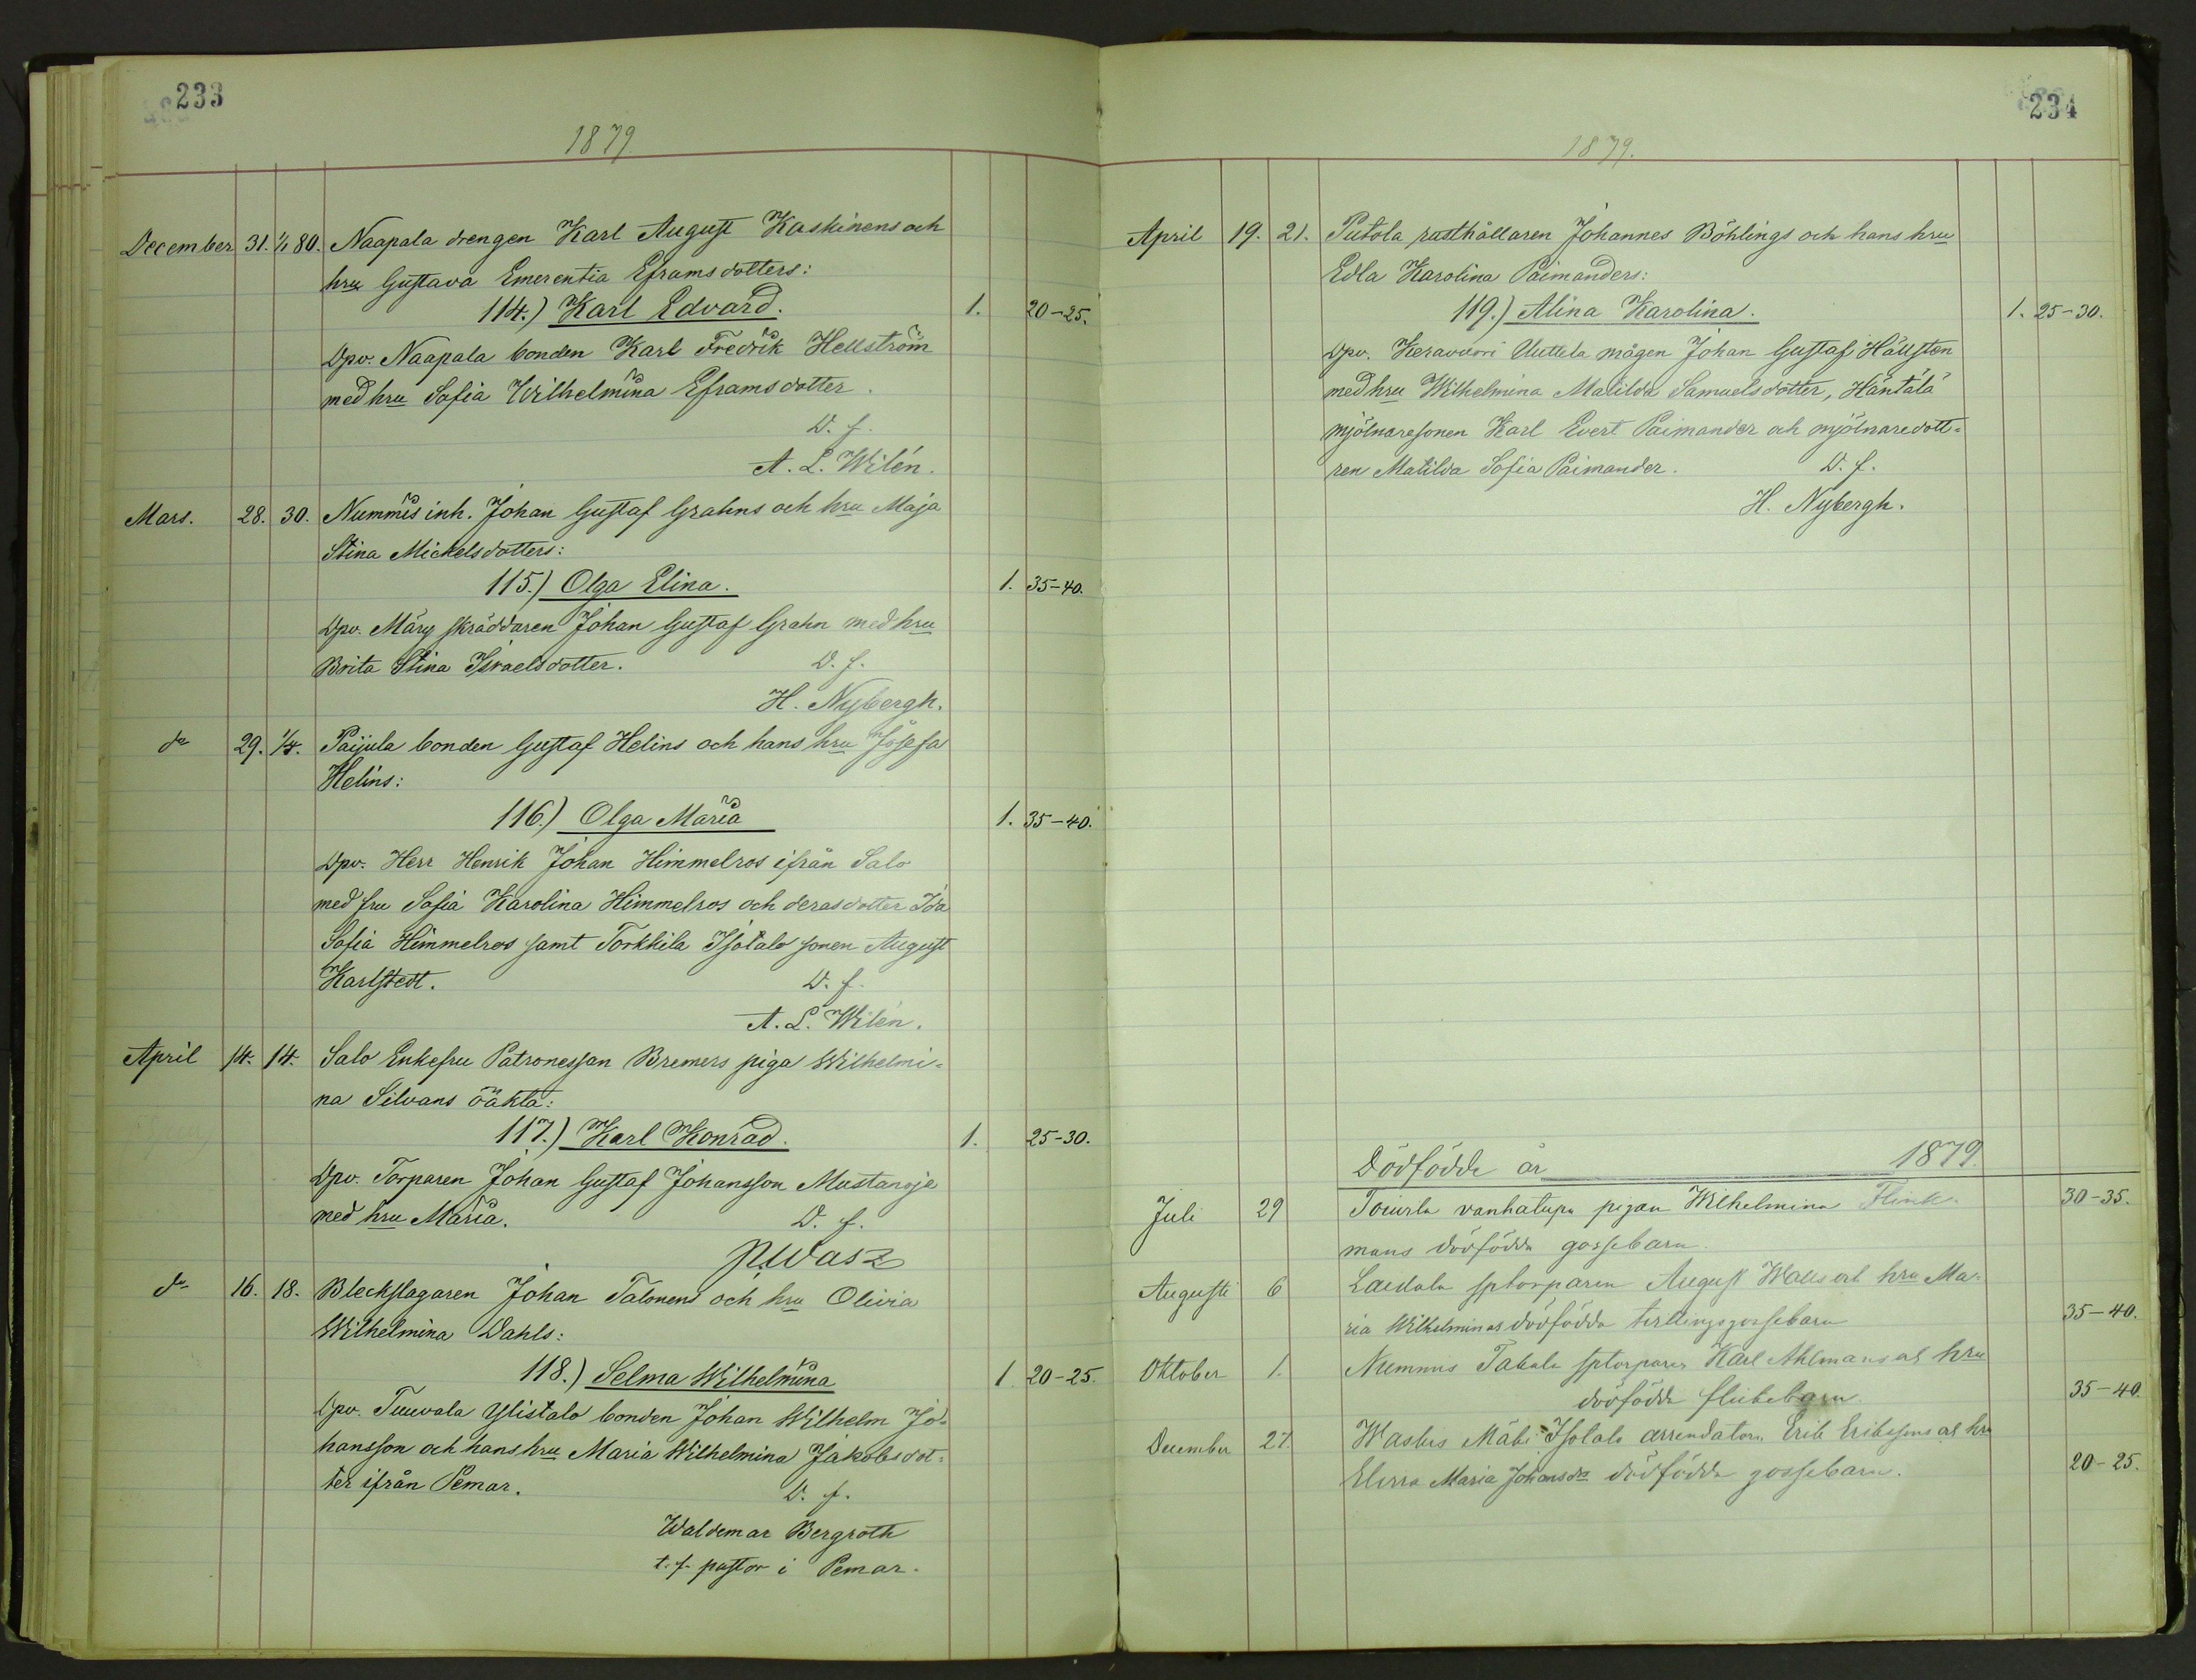 233
1879
December 31. 1/1 80. Naapala drengen Karl August Kaskinens och
hru Gustava Emerentia Eframsdotters:
114.) Karl Edvard. 1. 20-25.
Dpv. Naapala bonden Karl Fredrik Hellström
med hru Sofia Wilhelmina Eframsdotter.
D. f.
A. L. Wilén.
Mars. 28. 30. Nummis inh. Johan Gustaf Grahns och hru Maja
Stina Mickelsdotters:
115.) Olga Elina. 1. 35-40.
Dpv. Märy skräddaren Johan Gustaf Grahn med hru
Brita Stina Israelsdotter. D. f.
H. Nybergh.
do 29. 1/4. Paijula bonden Gustaf Helins och hans hru Josefa
Helins:
116.) Olga Maria 1. 35-40.
Dpv. Herr Henrik Johan Himmelros ifrån Salo
med fru Sofia Karolina Himmelros och deras dotter Ida
Sofia Himmelros samt Torkkila Isotalo sonen August
Karlstedt. D. f.
A. L. Wilén.
April 14. 14. Salo Enkefru Patronessan Bremers piga Wilhelmi-
na Silvans oäkta:
117.) Karl Konrad. 1. 25-30.
Dpv. Torparen Johan Gustaf Johansson Mustanoja
med hru Maria. D. f.
do 16. 18. Bleckslagaren Johan Talonens och hru Olivia
Wilhelmina Dahls:
118.) Selma Wilhelmina 1 20-25.
Dpv. Tuuvala Ylistalo bonden Johan Wilhelm Jo-
hansson och hans hru Maria Wilhelmina Jakobsdot-
ter ifrån Pemar. D. f.
Waldemar Bergroth
t. f. pastor i Pemar.
234
1879.
April 19. 21. Putola rusthållaren Johannes Böhlings och hans hru
Edla Karolina Paimanders:
119.) Alina Karolina. 1. 25-30.
Dpv. Keravuori Uuttela mågen Johan Gustaf Hällsten
med hru Wilhelmina Matilda Samuelsdotter, Häntälä
mjölnaresonen Karl Evert Paimander och mjölnaredott-
ren Matilda Sofia Paimander. D. f.
H. Nybergh.
Dödfödde år 1879.
Juli 29 vanhatupa pigan Wilhelmina Flink- 30-35.
mans dödfödda gossebarn.
Augusti 6 Laidala sptorparen August Walls och hru Ma-
ria Wilhelminas dödfödda gossebarn 35-40.
Oktober 1. Nummis Takala sptorparen Karl Ahlmans och hru
dödfödda flickebarn 35-40.
December 27. Mäki Isotalo arrendatorn Erik Erikssons och hru
Maria Johansdr dödfödda gossebarn. 20-25.